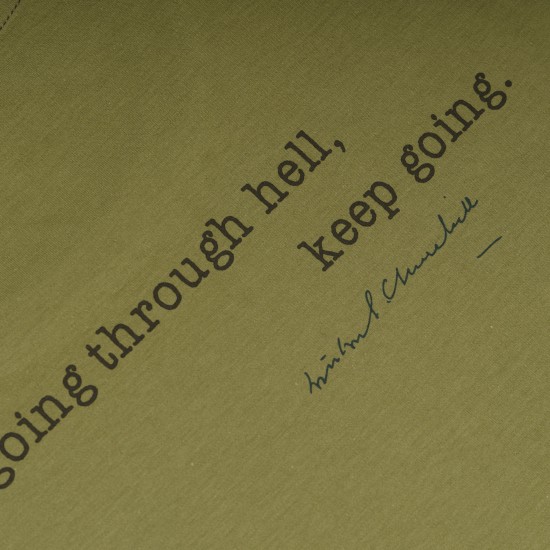 going through hell,
keep going.
Winston S. Churchill